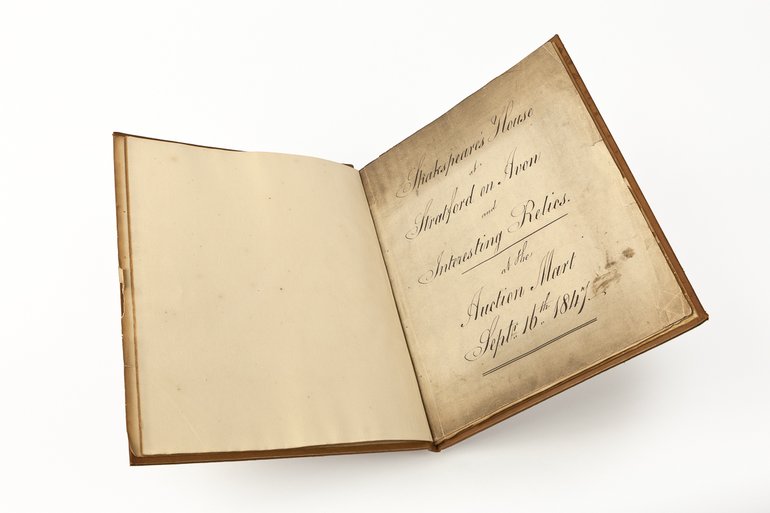 Shakspeare's House
at
Stratford on Avon
and
Interesting Relics.
at the
Auction Mart
Septr. 16th. 1847.